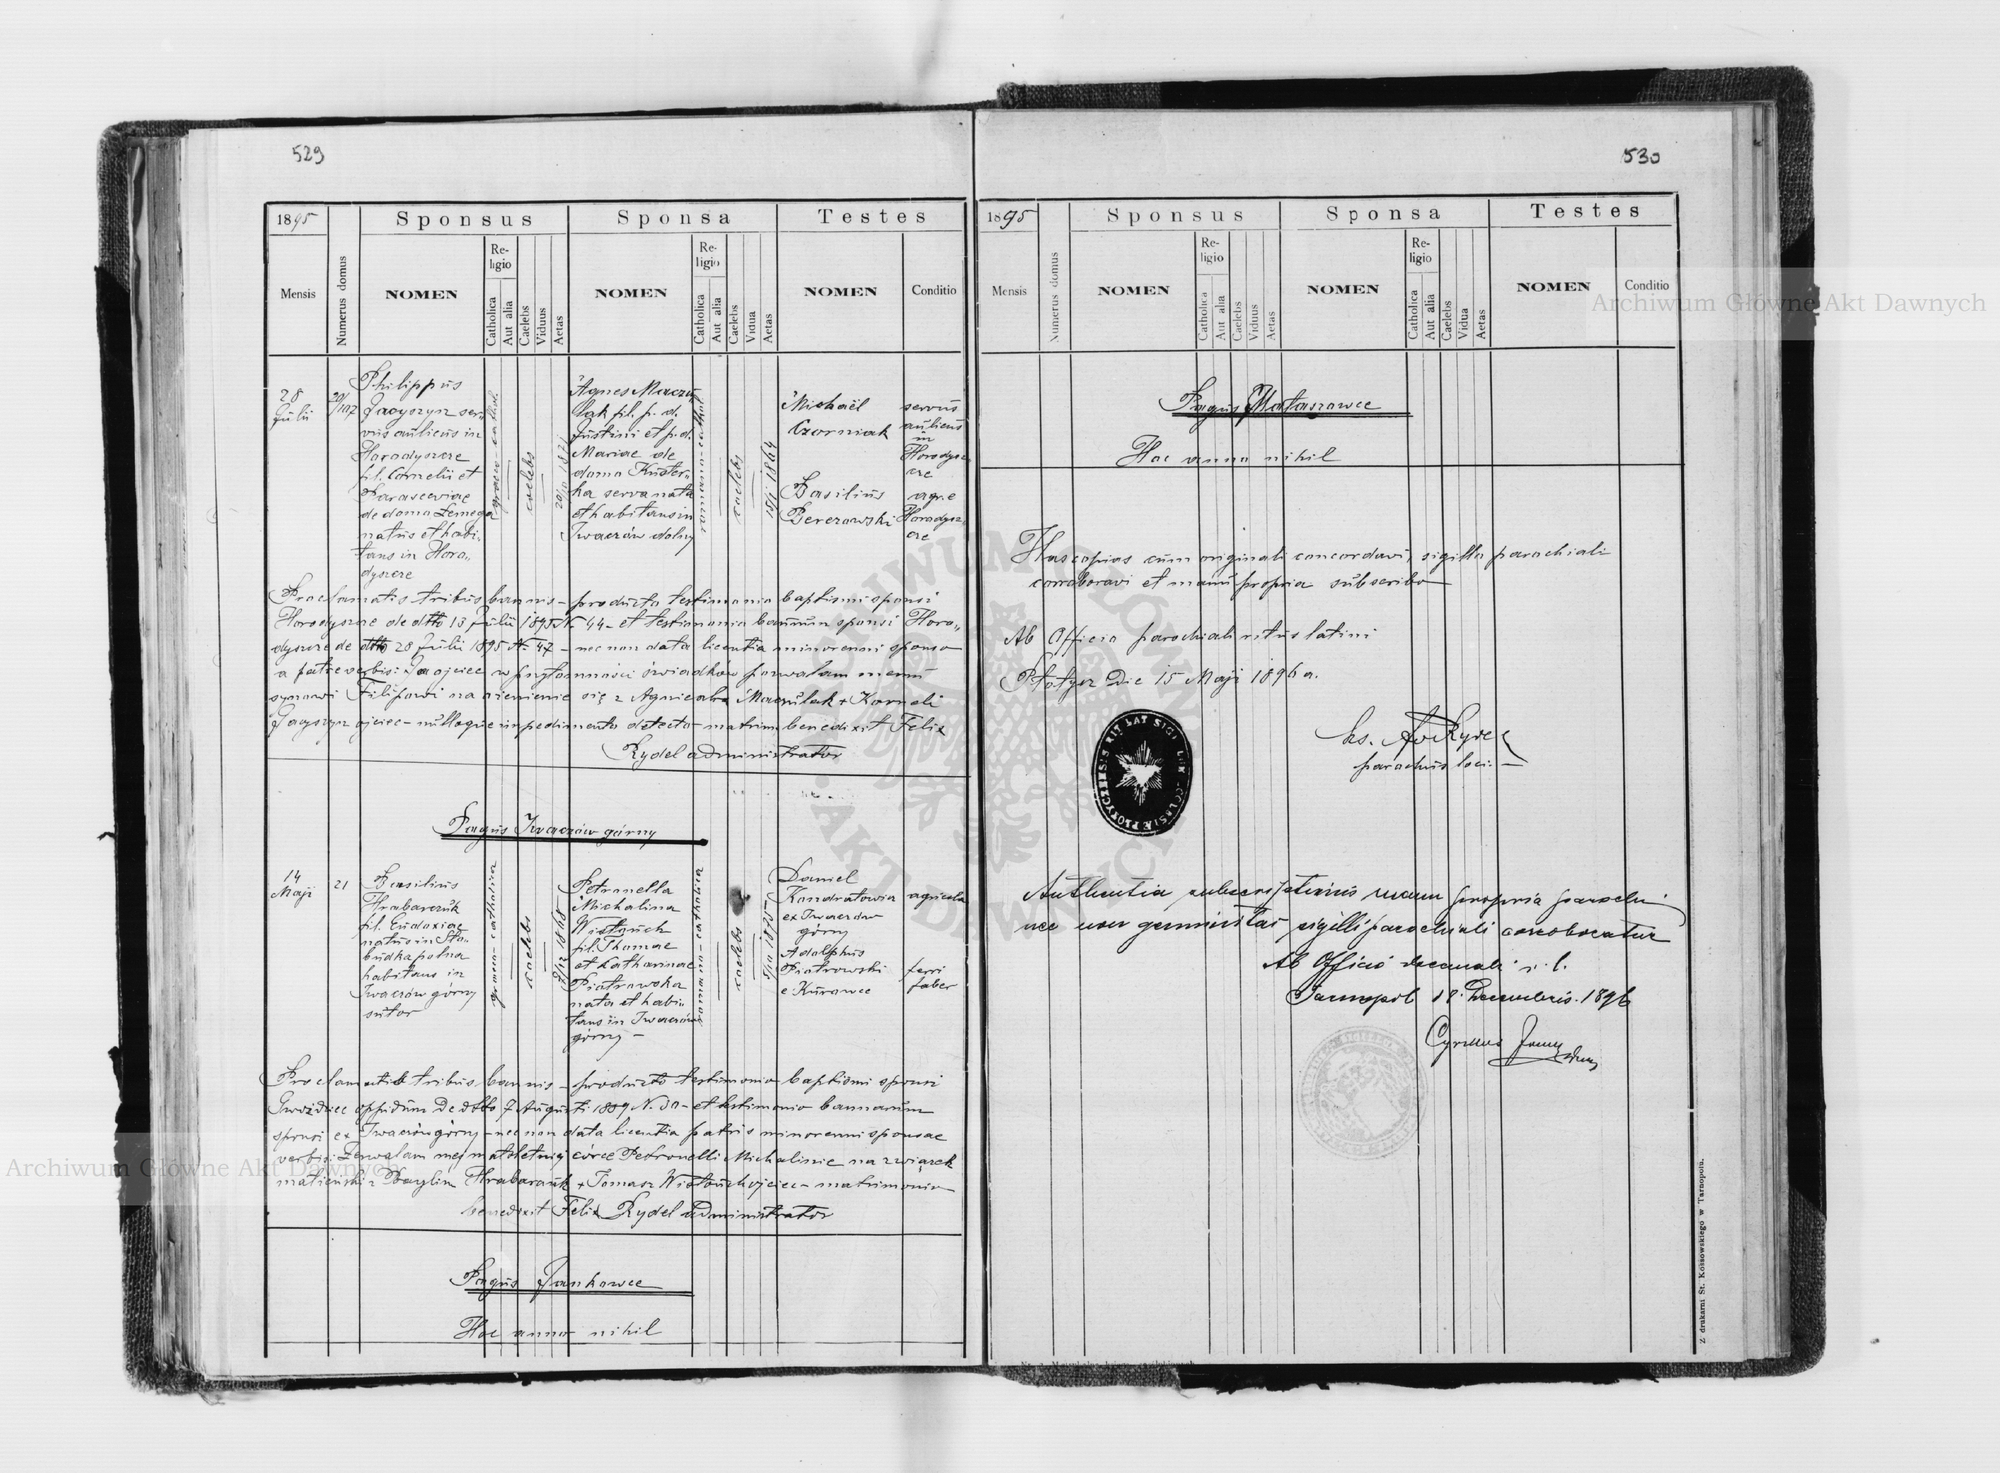 529
1895
Sponsus
Sponsa
Testes
Mensis
Numerus domus
NOMEN
Religio
Catholica
Aut alia
Caelebs
Viduus
Aetas
NOMEN
Religio
Catholica
Aut alia
Caelebs
Vidua
Aetas
NOMEN
Conditio
28
Julii
20/107
Philippus
Jacyszyn ser-
vus aulicus in
Horodyszcze
fil. Cornelii et
Parasceviae
de domo
natus et habi-
tans in Horo-
dyszcze
graeco-cathol.
caelebs
Agnes Maczu-
lak fil. p. d.
Justini et p. d.
Mariae de
domo Kuster-
ka serva nata
et habitans in
Iwaczów dolny
romano-cathol
caelebs
Michaël
Czorniak
servus
aulicus
in
Horodysz-
cze
Basilius
Berezowski
agre
Horodysz-
cze
Proclamatis tribus bannis - producto testimonio baptismi sponsi
Horodyszcze de dtto 13 Julii 1895 N. 44 - et testimonio bannorum sponsi Horo-
dyszcze de dtto 28 Julii 1895 N. 47 - nec non data licentia minorenni sponso
a patre verbis: Ja ojciec w przytomności świadków pozwalam memu
synowi Filipowi na ożenienie się z Agnieszką Maczulak + Korneli
Jacyszyn ojciec - nulloque impedimento detecto - matrim. benedixit Felix
Rydel administrator
Pagus Iwaczów górny
14
Maji
21
Basilius
Hrabarczuk
fil. Eudoxiae
natus in Sło-
budka polna
habitans in
Iwaczów górny
sutor
graeco-catholica
caelebs
Petronella
Michalina
fil. Thomae
et Catharinae
Piotrowska
nata et habi-
tans in Iwaczów
górny -
romano-catholica
caelebs
Daniel
Kondratowicz
ex Iwaczów
górny
agricola
Adolphus
Piotrowski
e Kurowce
ferri
faber
Proclamatis tribus bannis - producto testimonio baptismi sponsi
Gwoździec oppidum de dtto 7 Augusti 1889 N. - et testimonio bannorum
sponsi ex Iwaczów górny - nec non data licentia patris minorenni sponsae
verbis: Zezwalam mej małoletniej córce Petronelli Michalinie na związek
małżeński z Bazylim Hrabarczuk + Tomasz ojciec - matrimonio
benedixit Felix Rydel administrator
Pagus Jankowce
Hoc anno nihil
530
1895
Sponsus
Sponsa
Testes
Mensis
Numerus domus
NOMEN
Religio
Catholica
Aut alia
Caelebs
Viduus
Aetas
NOMEN
Religio
Catholica
Aut alia
Caelebs
Vidua
Aetas
NOMEN
Conditio
Pagus Płotaszowce
Hoc anno nihil
Has copias cum originali concordavi, sigillo parochiali
corroboravi et manu propria subscribo
Ab Officio parochiali ritus latini
Płotycz die 15 Maji 1896 a.
parochus loci
Authentia subscriptionis manu propria parochi
nec non genuinitas sigilli parochiali corroboratur
Ab Officio decanali r. l.
Tarnopol 18. Decembris. 1896
Cyrillus
Z drukarni St. Kossowskiego w Tarnopolu.
Archiwum Główne Akt Dawnych
Archiwum Główne Akt Dawnych
ARCHIWUM GŁÓWNE AKT DAWNYCH